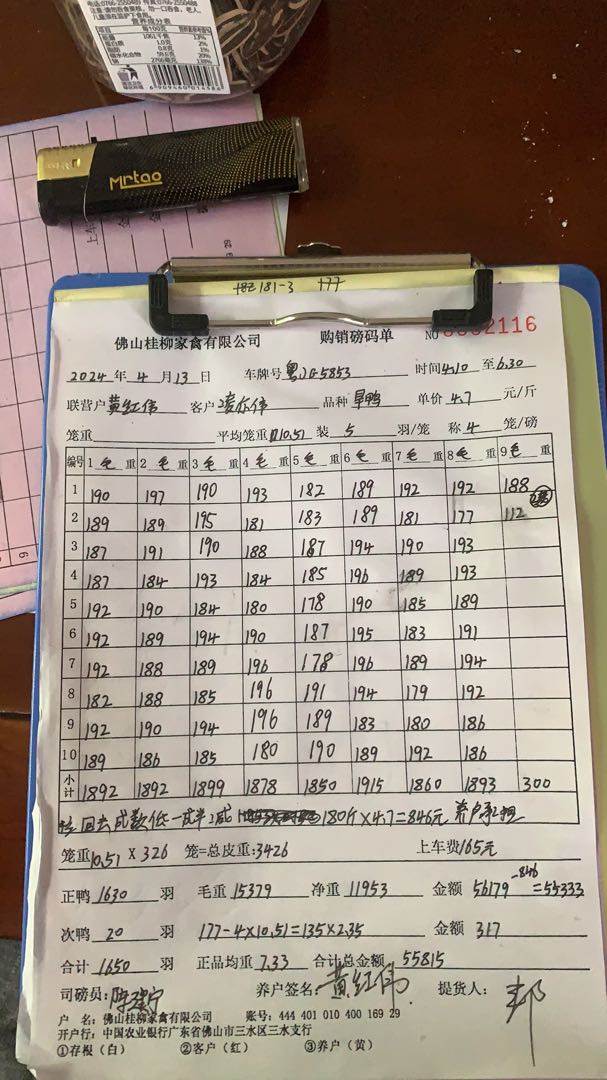 电话:0766-2550489 传真:0766-2550488
营养成分表
项目 每100克 营养素参考值%
能量 1061千焦 13%
蛋白质 1.0克 2%
脂肪 0.8克 1%
碳水化合物 59.6克 20%
钠 2766毫克 138%
6 909460 014586
Mrtao
181-3 177
佛山桂柳家禽有限公司 购销磅码单 NO 2116
2024 年 4 月 13 日 车牌号 粤 5853 时间 4.10 至 6.30
联营户 黄红伟 客户 品种 旱鸭 单价 4.7 元/斤
笼重 平均笼重 10.51 装 5 羽/笼 称 4 笼/磅
编号 1 毛 重 2 毛 重 3 毛 重 4 毛 重 5 毛 重 6 毛 重 7 毛 重 8 毛 重 9 毛 重
1 190 197 190 193 182 189 192 192 188
2 189 189 195 181 183 189 181 177 112
3 187 191 190 188 187 194 190 193
4 187 184 193 184 185 196 189 193
5 192 190 184 180 178 190 185 189
6 192 189 194 190 187 195 183 191
7 192 188 189 196 178 196 189 194
8 182 188 185 196 191 194 179 192
9 192 190 194 196 189 183 180 186
10 189 186 185 180 190 189 192 186
小计 1892 1892 1899 1878 1850 1915 1860 1893 300
回去成数低一成半 减 180斤×4.7=846元 养户承担
笼重 10.51 × 326 笼=总皮重: 3426 上车费 165元
正鸭 1630 羽 毛重 15379 净重 11953 金额 56179 -846 =55333
次鸭 20 羽 177-4×10.51=135×2.35 金额 317
合计 1650 羽 正品均重 7.33 合计总金额 55815
司磅员: 养户签名: 黄红伟 提货人:
户 名: 佛山桂柳家禽有限公司 账号: 444 401 010 400 169 29
开户行: 中国农业银行广东省佛山市三水区三水支行
①存根(白) ②客户(红) ③养户(黄)